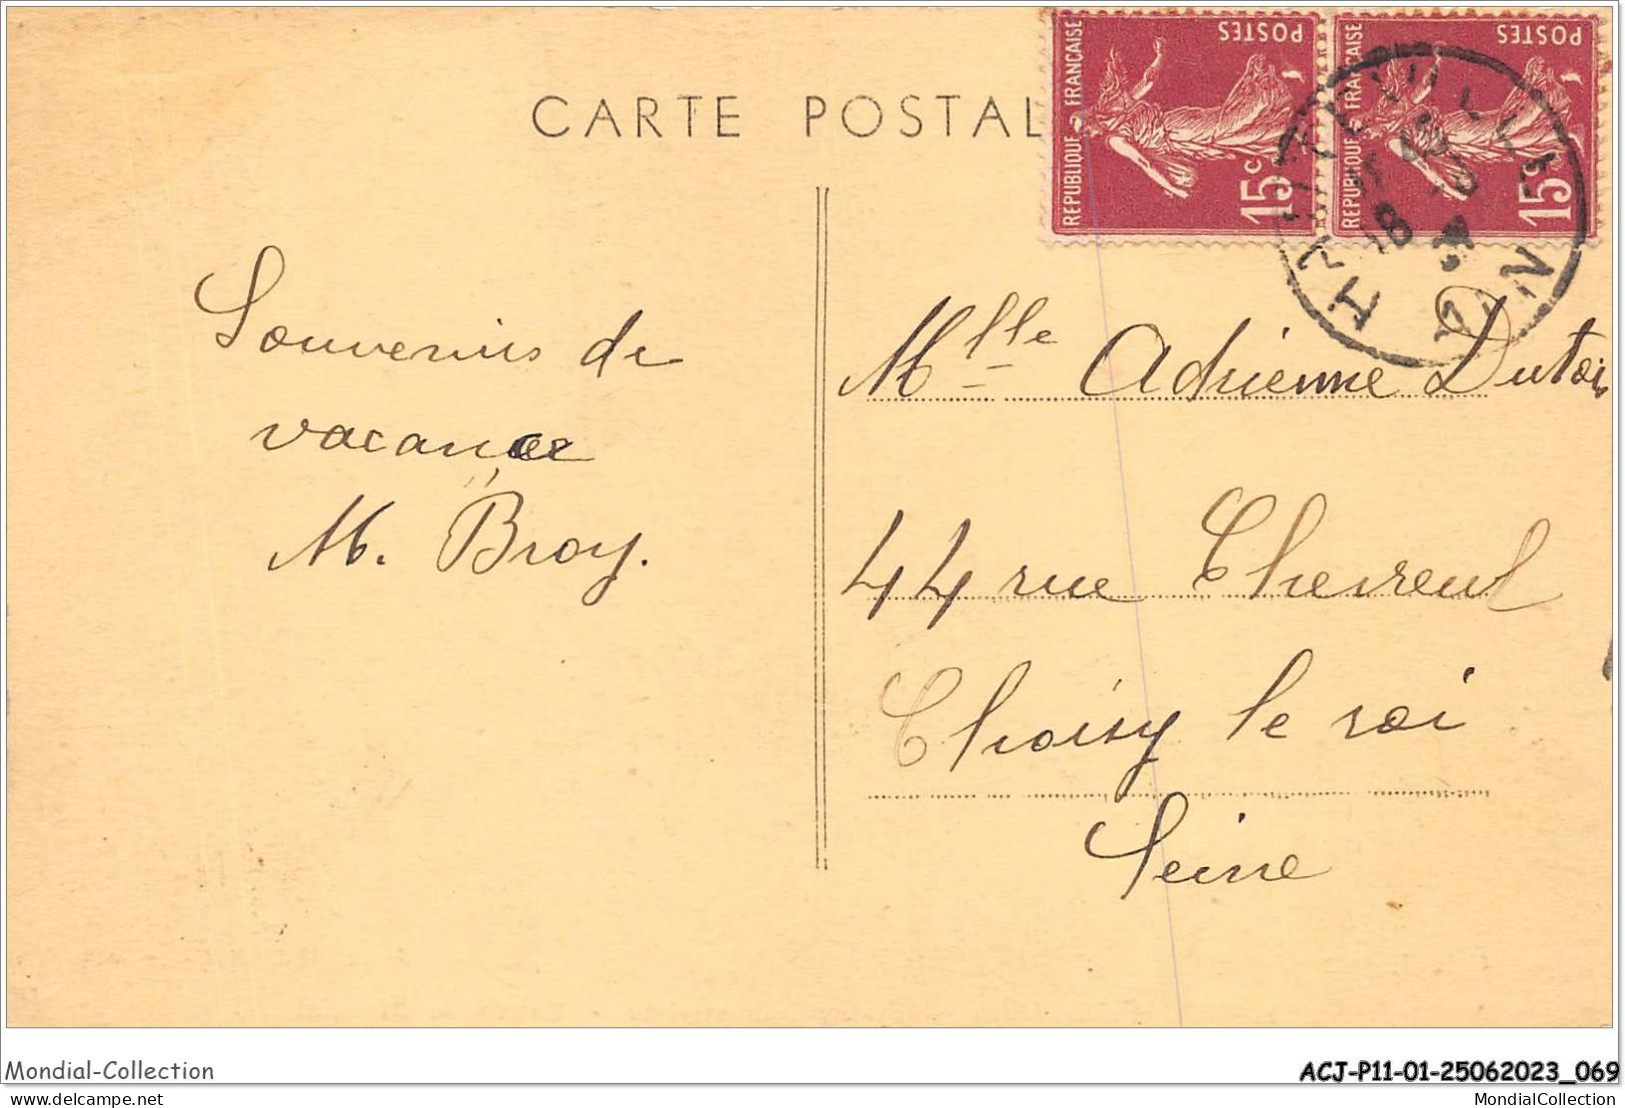 CARTE POSTAL
REPUBLIQUE FRANÇAISE
POSTES
15c
REPUBLIQUE FRANÇAISE
POSTES
15c
18
Souvenirs de
vacance
M. Broy.
Mlle Adrienne Dutoi
44 rue Chevreul
Choisy le roi
Seine
Mondial-Collection
ACJ-P11-01-25062023_069
delcampe.net
MondialCollection